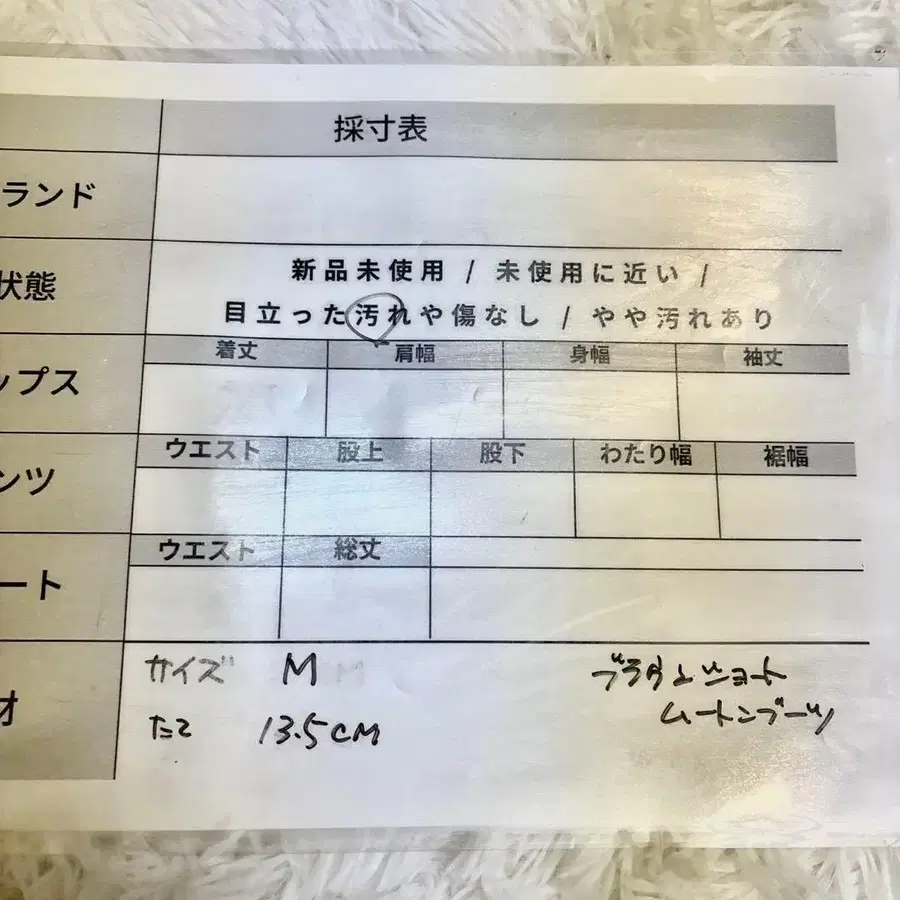 採寸表
ランド
状態
新品未使用 / 未使用に近い /
目立った汚れや傷なし / やや汚れあり
ップス
着丈 肩幅 身幅 袖丈
ンツ
ウエスト 股上 股下 わたり幅 裾幅
ート
ウエスト 総丈
サイズ M
たて 13.5CM
ブラウンショート
ムートンブーツ